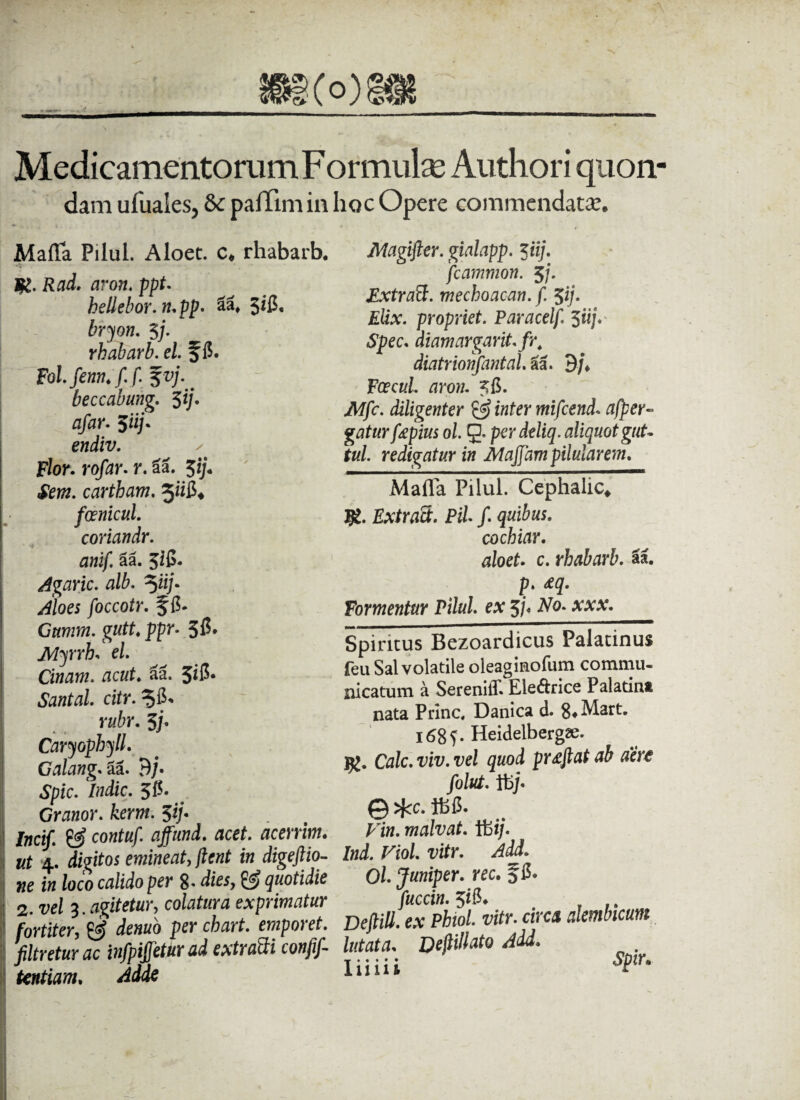 (o)
MedicamentorumFormulæ Authori quon-
dam uſuales, & paſſim in hoc Opere commendatæ.
Maſſa Pilul. Aloet. c. rhabarb.
℞. Rad. aron. ppt.
hellebor. n. pp. āā. ʒiß.
bryon. ʒj.
rhabarb. el. ℥ß.
Fol. ſenn. ſ. ſ. ℥vj.
beccabung. ʒij.
aſar. ʒiij.
endiv.
Flor. roſar. r. āā. ʒij.
Sem. cartham. ʒiiß.
fœnicul.
coriandr.
aniſ. āā. ʒiß.
Agaric. alb. ʒiij.
Aloes ſoccotr. ℥ß.
Gumm. gutt. ppr. ʒß.
Myrrh. el.
Cinam. acut. āā. ʒiß.
Santal. citr. ʒß.
rubr. ʒj.
Caryophyll.
Galang. āā. ℈j.
Spic. Indic. ʒß.
Granor. kerm. ʒij.
Inciſ. & contuſ. affund. acet. acerrim.
ut 4. digitos emineat, ſtent in digeſtio-
ne in loco calido per 8. dies, & quotidie
2. vel 3. agitetur, colatura exprimatur
fortiter, & denuò per chart. emporet.
filtretur ac inſpiſſetur ad extracti conſiſ-
tentiam. Adde
Magiſter. gialapp. ʒiij.
ſcammon. ʒj.
Extract. mechoacan. ſ. ʒij.
Elix. propriet. Paracelſ. ʒiij.
Spec. diamargarit. fr.
diatrionſantal. āā. ℈j.
Fœcul. aron. ℥ß.
Mſc. diligenter & inter miſcend. aſper-
gatur ſæpius ol. Q. per deliq. aliquot gut-
tul. redigatur in Maſſam pilularem.
Maſſa Pilul. Cephalic.
℞. Extract. Pil. ſ. quibus.
cochiar.
aloet. c. rhabarb. āā.
p. æq.
Formentur Pilul. ex ʒj. No. xxx.
Spiritus Bezoardicus Palatinus
ſeu Sal volatile oleaginoſum commu-
nicatum à Sereniſſ. Electrice Palatina
nata Princ. Danica d. 8. Mart.
1685. Heidelbergæ.
℞. Calc. viv. vel quod præſtat ab aëre
ſolut. ℔j.
⊖ ⚹c. ℔ß.
Vin. malvat. ℔ij.
Ind. Viol. vitr. Add.
Ol. Juniper. rec. ℥ß.
ſuccin. ʒiß.
Deſtill. ex Phiol. vitr. circa alembicum
lutata. Deſtillato Add.
Iiiiii
Spir.